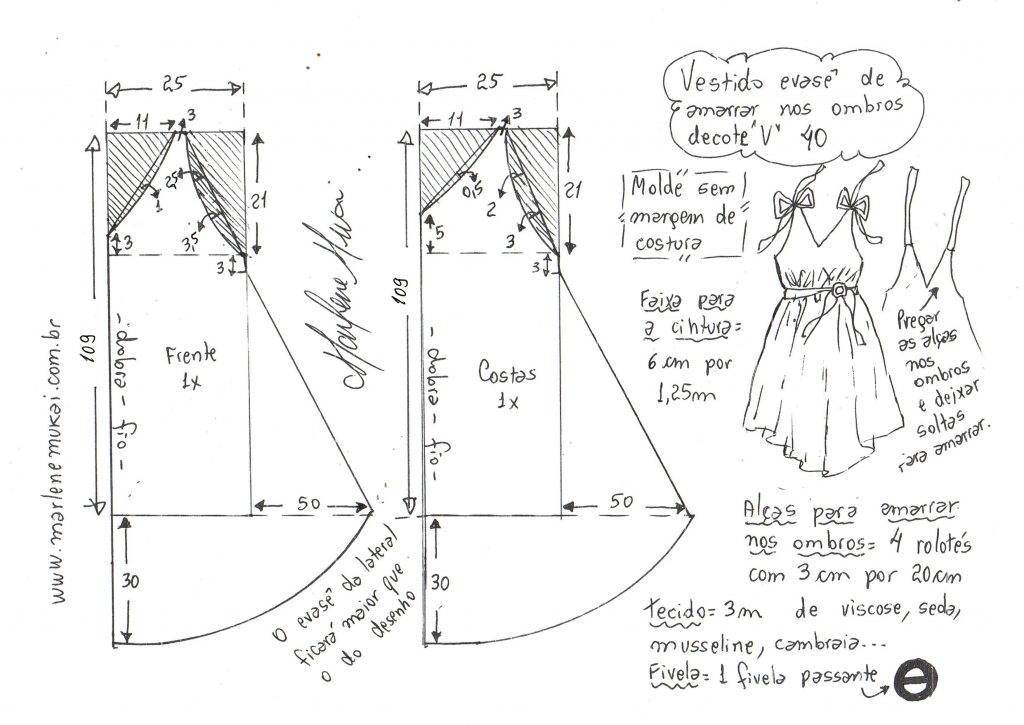 Vestido evasê de
amarrar nos ombros
decote "V" 40
Molde sem
margem de
costura
Faixa para
a cintura=
6 cm por
1,25m
Pregar
as alças
nos
ombros
e deixar
soltas
para amarrar.
Alças para amarrar
nos ombros= 4 rolotés
com 3 cm por 20 cm
tecido= 3m de viscose, seda,
musseline, cambraia...
Fivela= 1 fivela passante
25
11
3
2,5
1
3,5
21
3
3
109
Frente
1x
dobra - fio
50
30
O evasê da lateral
ficará maior que
o do desenho
Marlene Mukai
www.marlenemukai.com.br
25
11
3
0,5
2
3
21
5
3
109
Costas
1x
dobra - fio
50
30